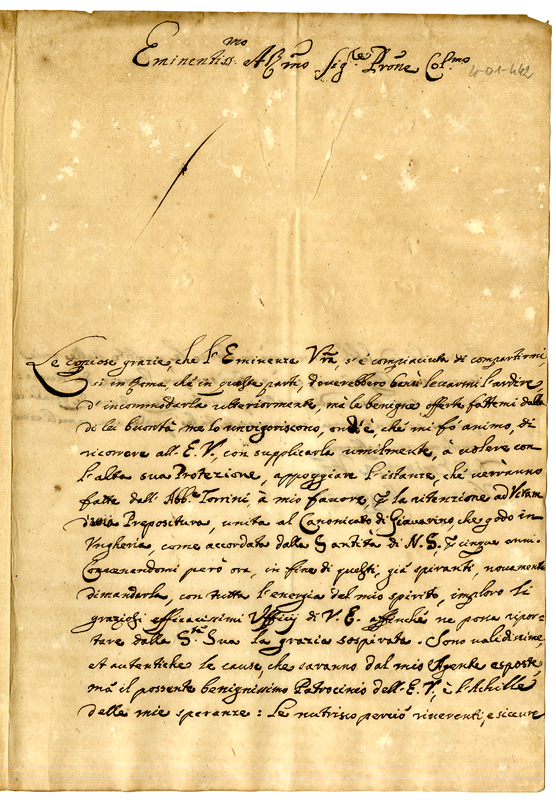 Eminentiss.mo
Sig.re Prõne Col.mo
W-01-442
Le copiose grazie, che l'Eminenza Vrã, s'è compiaciuta di compartirmi,
si in Roma, che in queste parte, doverebbero levarmi l'ardire
d'incommodarla ulteriormente, mà le benigne offerte fattemi dalla
di lei me lo rinvigoriscono, ond'è, che mi fò animo, di
ricorrere all'E.V., con supplicarla umilmente, à volere con
l'alta sua Protezione, appoggiare l'istanze, che verranno
fatte dall'Abb.e Torrini, à mio favore, la ritenzione ad Vitam
Prepositura, unita al Canonicato di Giavarino, che godo in
Ungheria, come accordata dalla Santità di N.S. cinque anni.
Convenendomi però ora, in fine di questi, già spiranti, novamente
dimandarla, con tutta l'energia del mio spirito, imploro li
graziosi efficacissimi Ufficij di V.E. affinché ne possa ripor=
tare dalla S.tà Sua la grazia sospirata. Sono validissime,
et autentiche le cause, che saranno dal mio Agente esposte,
mà il possente benignissimo Patrocinio dell'E.V., è l'Achille
delle mie speranze: Le nutrisco perciò riverenti, e sicure